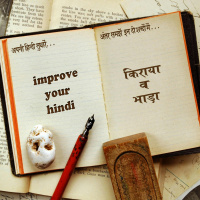 अपनी हिन्दी सुधारें...
improve
your
hindi
अंतर समझें इन वैशब्दों में...
किराया
व
भाड़ा